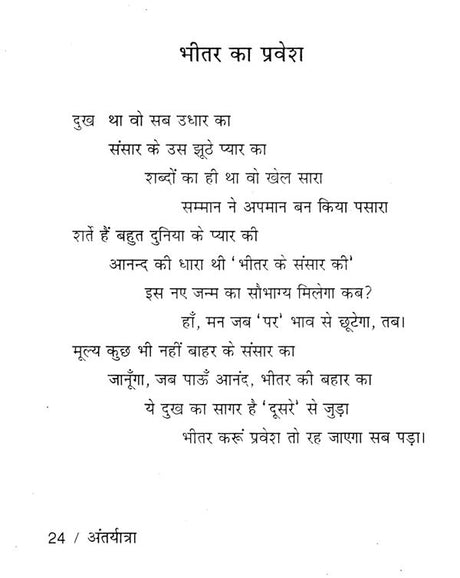 भीतर का प्रवेश
दुख था वो सब उधार का
संसार के उस झूठे प्यार का
शब्दों का ही था वो खेल सारा
सम्मान ने अपमान बन किया पसारा
शर्ते हैं बहुत दुनिया के प्यार की
आनन्द की धारा थी 'भीतर के संसार की'
इस नए जन्म का सौभाग्य मिलेगा कब?
हाँ, मन जब 'पर' भाव से छूटेगा, तब।
मूल्य कुछ भी नहीं बाहर के संसार का
जानूँगा, जब पाऊँ आनंद, भीतर की बहार का
ये दुख का सागर है 'दूसरे' से जुड़ा
भीतर करूं प्रवेश तो रह जाएगा सब पड़ा।
24 / अंतर्यात्रा